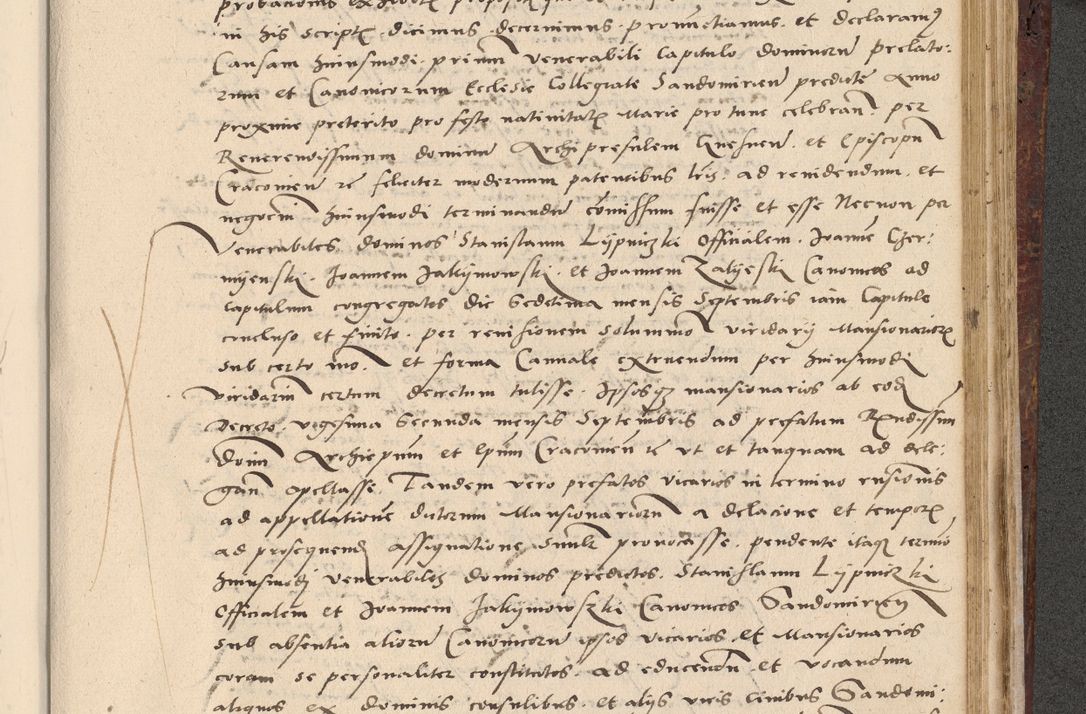 in his scriptis dicimus decernimus pronunctiamus et declaramus
Causam huiusmodi primum venerabili Capitulo dominorum prelato:
rum et Canonicorum Ecclesie Collegiate Sandomirien predicte Anno
proxime preterito pro festo nativitatis Marie pro tunc celebran per
Reverendissimum dominum Archipresulem Gnesnen et Episcopum
Cracovien etc feliciter modernum patentibus lris ad revidendum et
negocium huiusmodi terminandum comissum fuisse et esse Necnon per
Venerabiles dominos Stanislaum Lypniczki Officialem Joannem Czer:
nijenski Joannem Jakymowski et Joannem Zalijeski Canonicos ad
Capitulum congregatos die Sedecima mensis Septembris iam Capitulo
concluso et finito per revisionem solummodo viridarij Mansionariorum
sub certo mo et forma Cannale extruendum per huiusmodi
viridarium certum decretum tulisse Ipsosque mansionarios ab eodem
Decreto vigesima secunda mensis Septembris ad prefatum Rendissimum
Dominum Archiepum et Epum Cracovien etc ut et tanquam ad dele:
gatum apellasse Tandem vero prefatos vicarios in termino revisionis
ad appellatione dictorum Mansionariorum a delacione et temporis
ad prosequendum assignatione similiter provocasse pendente itaque termino
huiusmodi venerabiles dominos predictos Stanislaum Lypniczki
Officialem et Joannem Jakymowszki Canonicos Sandomirien
sub absentia aliorum Canonicorum ipsos vicarios et Mansionarios
coram se personaliter constitutos ad educendum et vocandum
aliquos ex dominis consulibus et alijs viris civibus Sandomi: